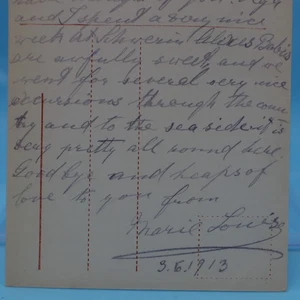 and I spend a very nice
week at Schwerin Alix's Babies
are awfully sweet, and we
went for several very nice
excursions through the coun
try and to the seaside it is
very pretty all round here.
Goodbye and heaps of
love to you from
Marie Louise
3.6.1913